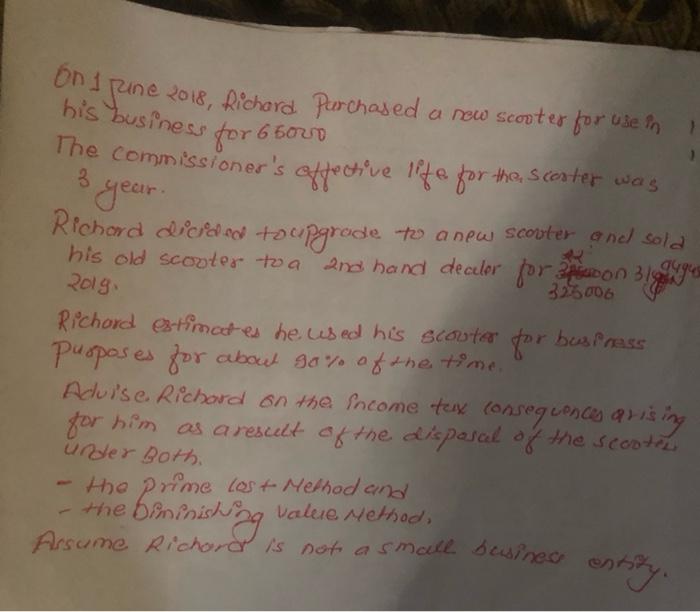 On 1 June 2018, Richard Purchased a new scooter for use in
his business for
The commissioner's effective life for the scooter was
3 year.
Richard dicided to upgrade to a new scooter and sold
his old scooter to a 2nd hand dealer for on 31
2019.
Richard estimates he used his scooter for business
Puoposes for about 90% of the time.
Advise Richard on the income tax consequences arising
for him as a result of the disposal of the scooter
under Both.
- the prime Cost Method and
- the Diminishing Value Method.
Assume Richard is not a small business entity.